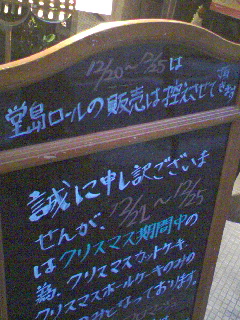 12/20〜12/25は
堂島ロールの販売は控えさせて
誠に申し訳ございま
せんが、12/21〜12/25
はクリスマス期間中の
為、クリスマスカットケーキ、
クリスマスホールケーキのみの
となっております。